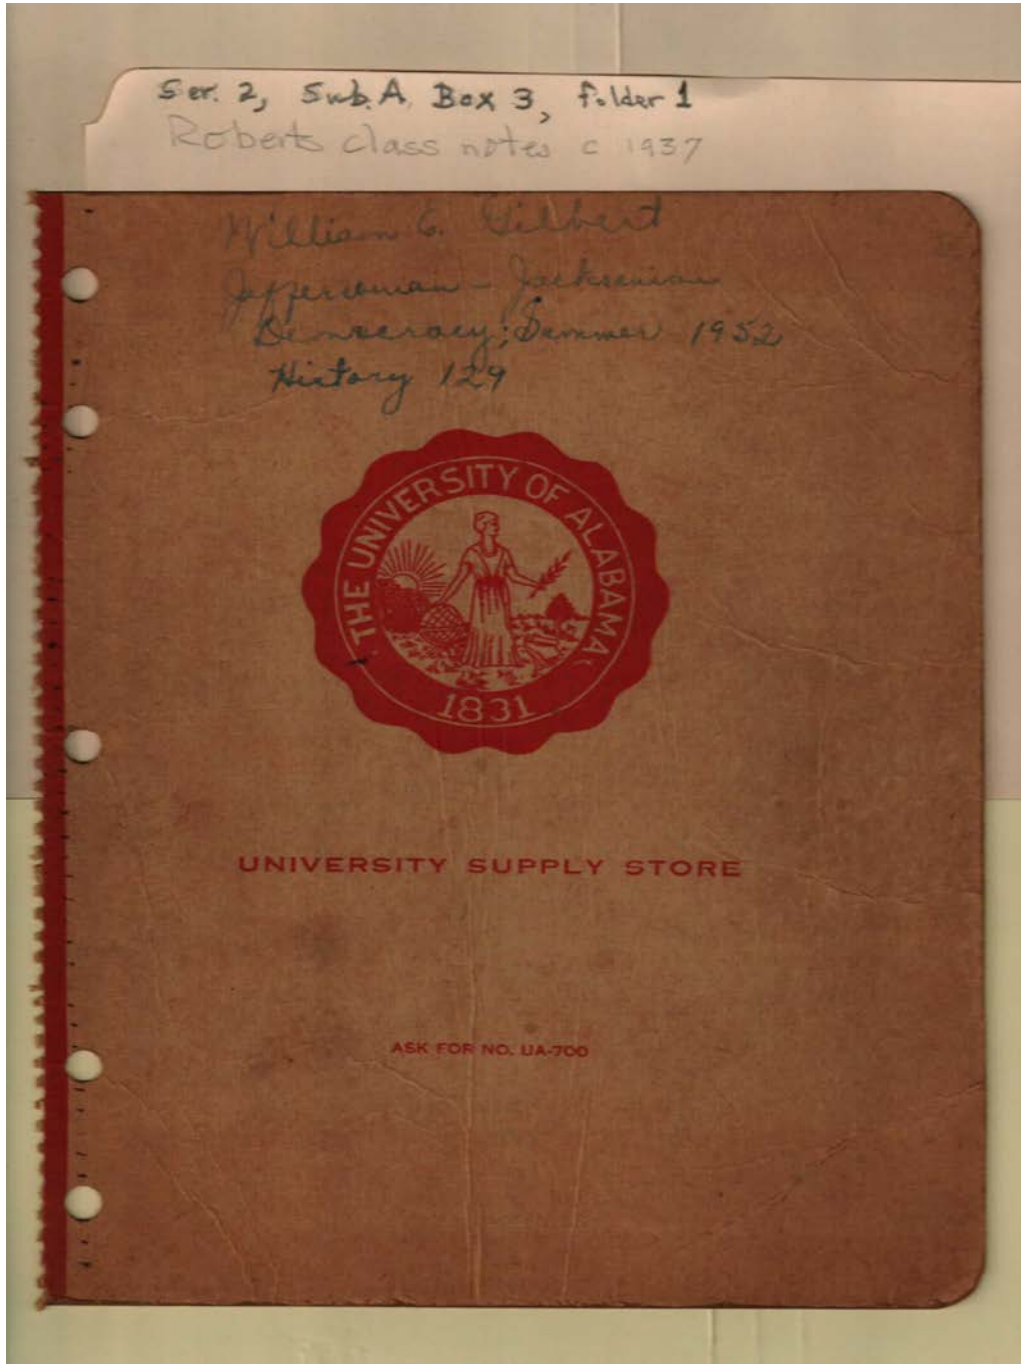 Ser. 2, Sub. A, Box 3, folder 1
Roberts class notes c 1937
William G. Gilbert
Jeffersonian - Jacksonian
Democracy; Summer 1952
History 129
THE UNIVERSITY OF ALABAMA
1831
UNIVERSITY SUPPLY STORE
ASK FOR NO. UA-700